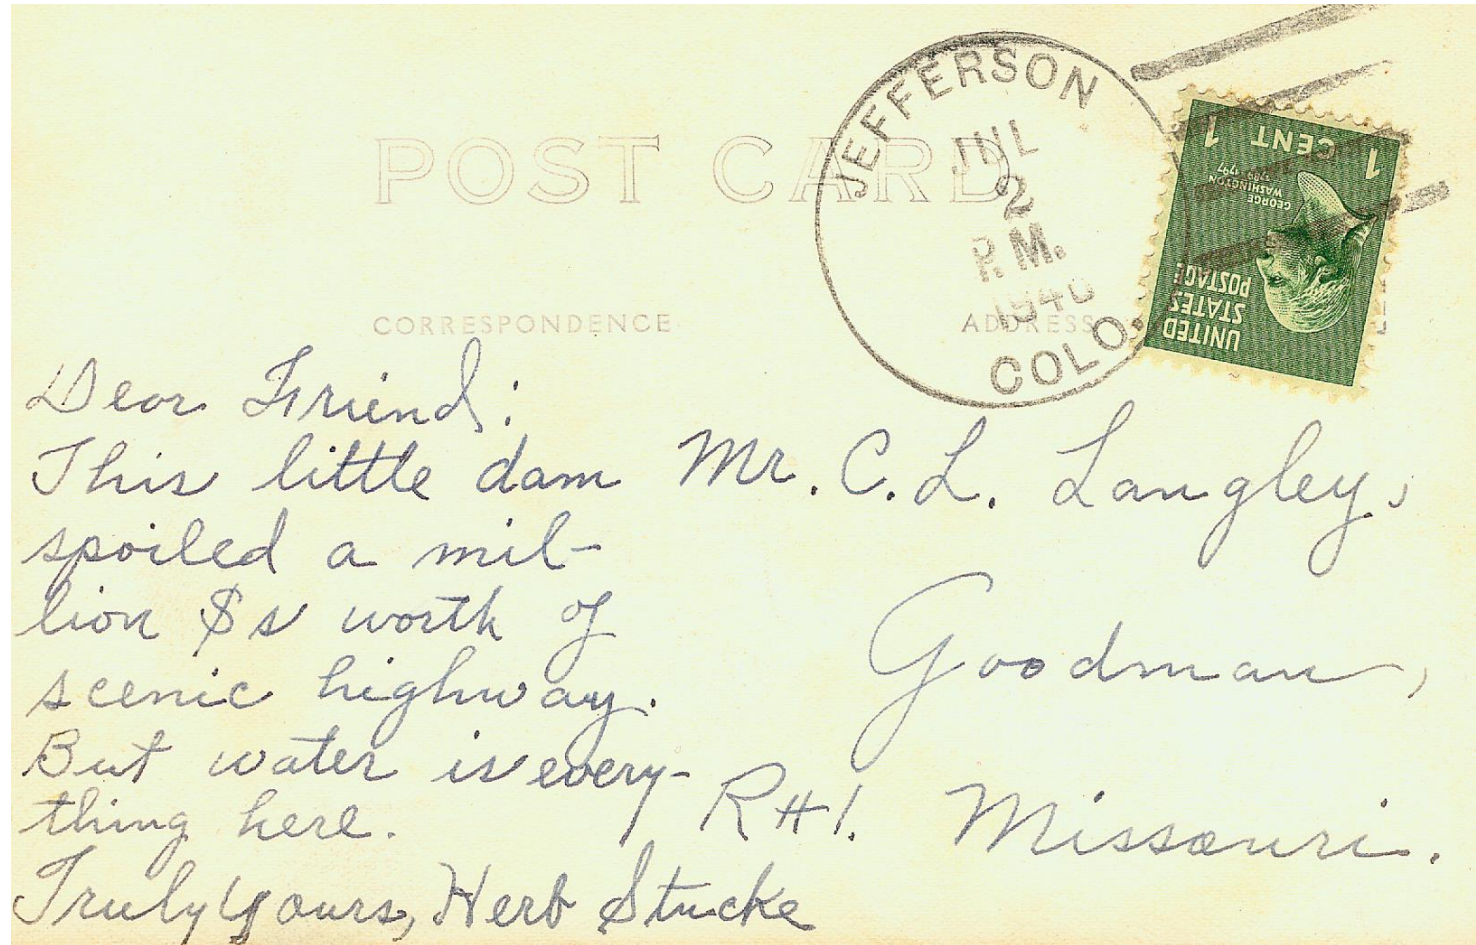 POST CARD
JEFFERSON
JUL
2
P.M.
1940
COLO.
1 CENT 1
GEORGE
WASHINGTON
1789-1797
UNITED
STATES
POSTAGE
CORRESPONDENCE
ADDRESS
Dear Friend:
This little dam
spoiled a mil-
lion $s worth of
scenic highway.
But water is every-
thing here.
Truly Yours, Herb Stucke
Mr. C. L. Langley,
Goodman,
R#1. Missouri.